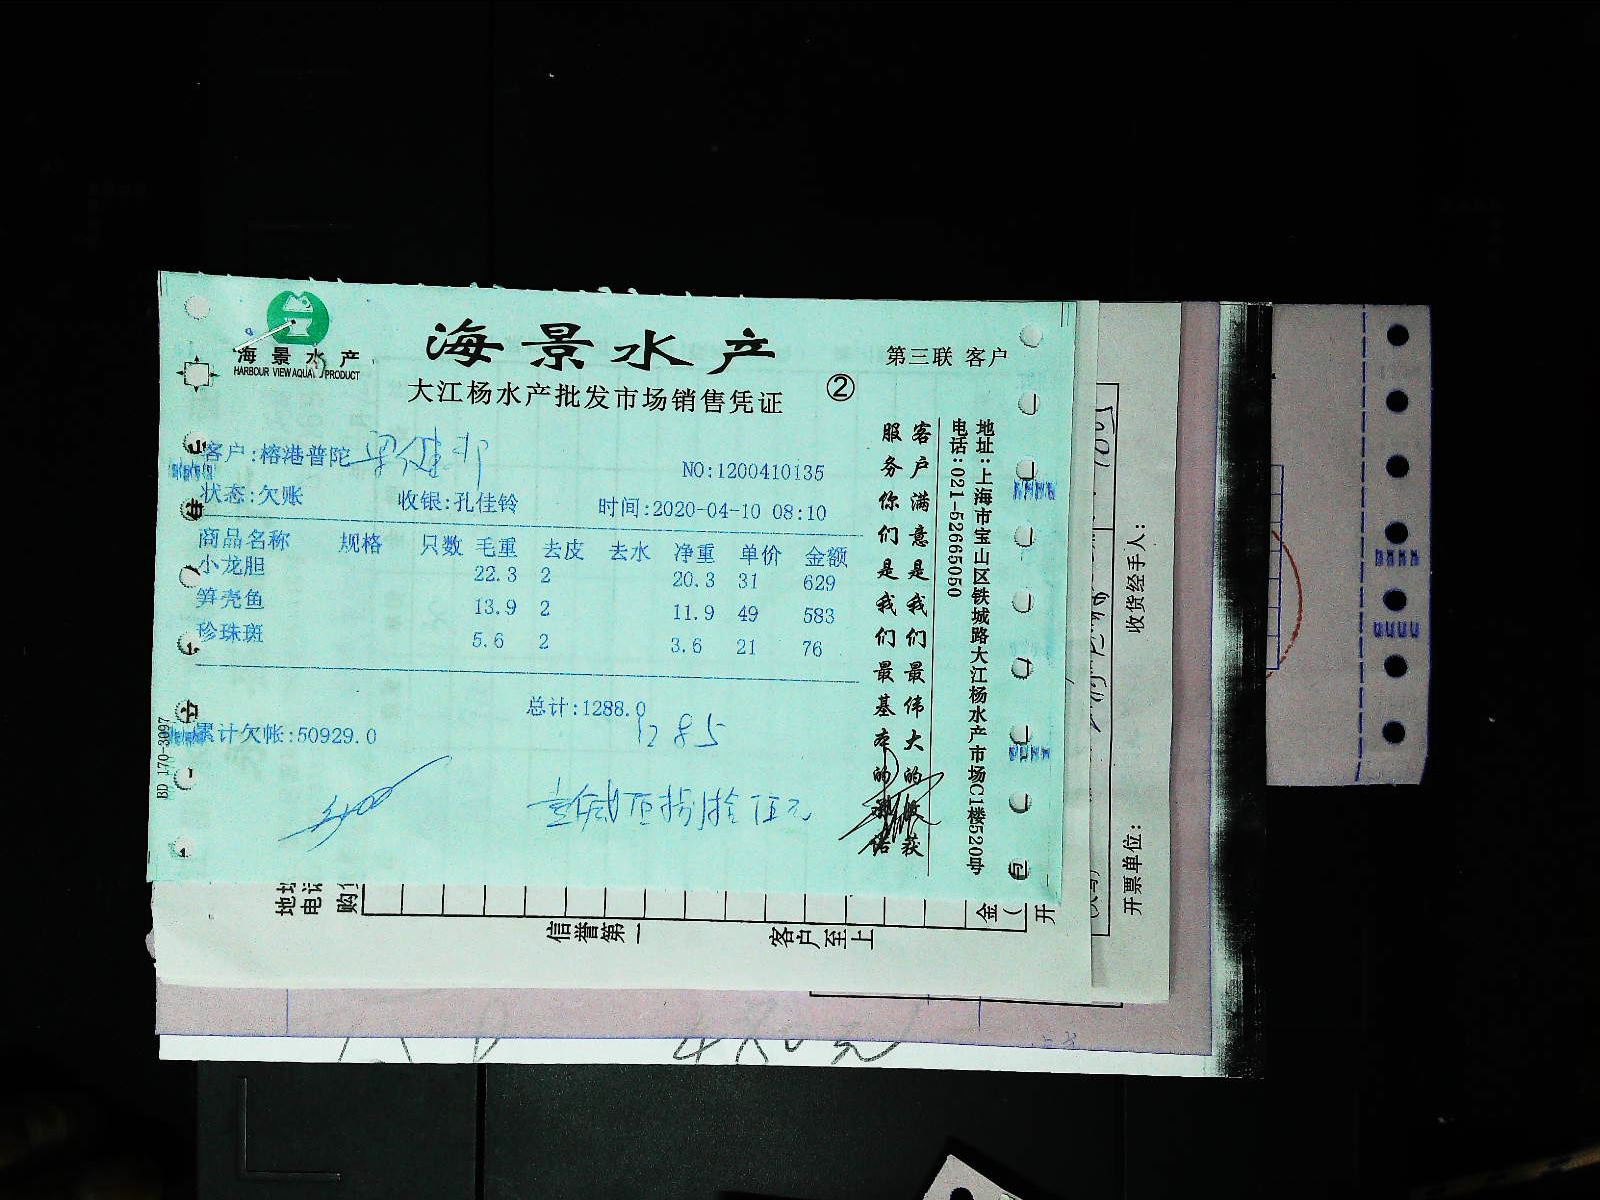 海景水产
HARBOUR VIEW AQUA PRODUCT
海景水产
第三联 客户
大江杨水产批发市场销售凭证 ②
客户:榕港普陀
NO:1200410135
状态:欠账 收银:孔佳铃 时间:2020-04-10 08:10
商品名称 规格 只数 毛重 去皮 去水 净重 单价 金额
小龙胆 22.3 2 20.3 31 629
笋壳鱼 13.9 2 11.9 49 583
珍珠斑 5.6 2 3.6 21 76
总计:1288.0
1285
累计欠帐:50929.0
壹仟贰佰捌拾伍元
BD 170-3097
客户满意是我们最伟大的收获
服务你们是我们最基本的承诺
地址:上海市宝山区铁城路大江杨水产市场C1楼520号
电话:021-52665050
收货经手人:
开票单位:
地址
电话
购
信誉第一
客户至上
金
开